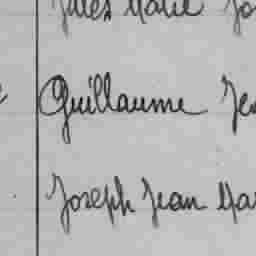 Jules Marie Jo
Guillaume Je
Joseph Jean Ma